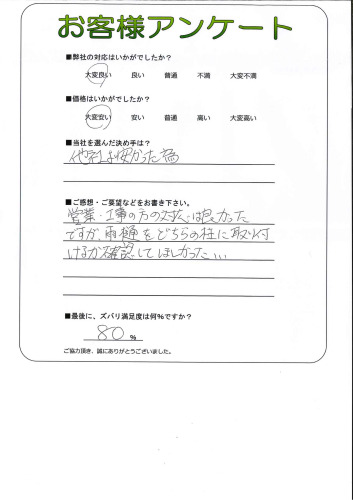 お客様アンケート
■弊社の対応はいかがでしたか?
大変良い 良い 普通 不満 大変不満
■価格はいかがでしたか?
大変安い 安い 普通 高い 大変高い
■当社を選んだ決め手は?
他社より安かった為
■ご感想・ご要望などをお書き下さい。
営業・工事の方の対応は良かった
ですが、雨樋をどちらの柱に取り付
けるか確認してほしかった...
■最後に、ズバリ満足度は何%ですか?
80 %
ご協力頂き、誠にありがとうございました。